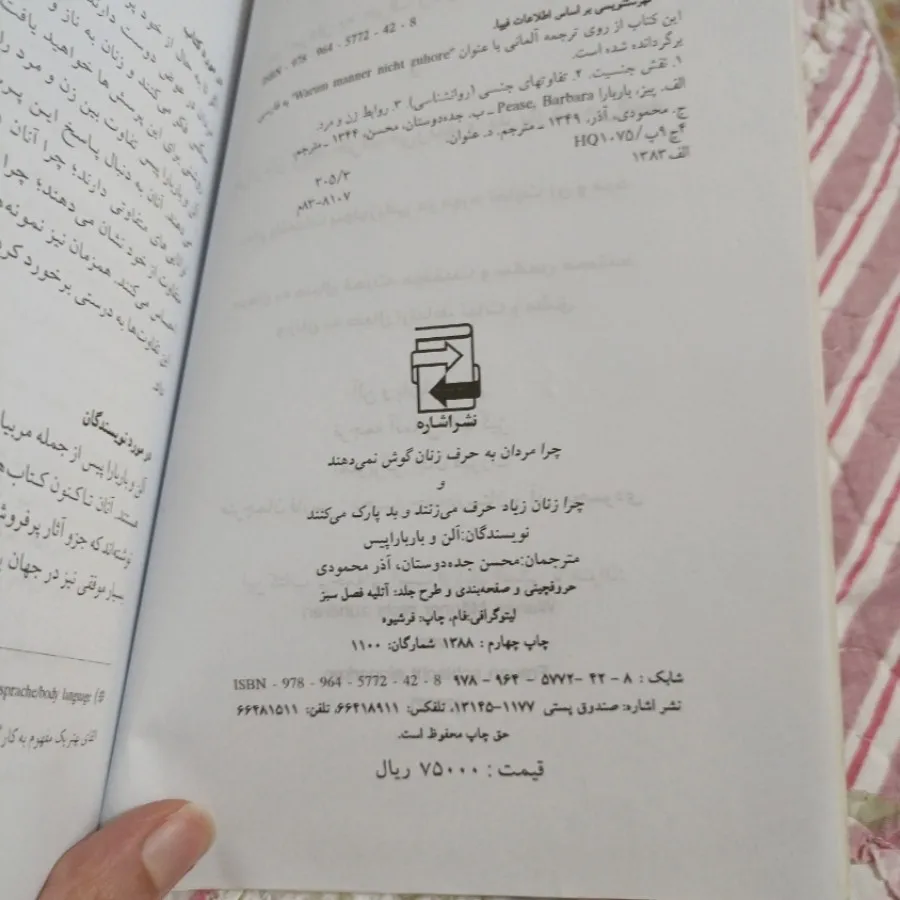 فهرستنویسی بر اساس اطلاعات فیپا.
ISBN - 978 - 964 - 5772 - 42 - 8
این کتاب از روی ترجمه آلمانی با عنوان "Warum manner nicht zuhore" به فارسی
برگردانده شده است.
۱. نقش جنسیت. ۲. تفاوتهای جنسی (روانشناسی). ۳. روابط زن و مرد.
الف. پیز، باربارا Pease, Barbara ـ ب. جده‌دوستان، محسن، ۱۳۴۴ ـ مترجم.
ج. محمودی، آذر، ۱۳۴۹ ـ مترجم. د. عنوان.
۴چ۹پ/HQ۱۰۷۵
الف۱۳۸۳
۳۰۵/۳
۸۱۰۷-۸۳م
نشر اشاره
چرا مردان به حرف زنان گوش نمی‌دهند
و
چرا زنان زیاد حرف می‌زنند و بد پارک می‌کنند
نویسندگان: آلن و باربارا پیس
مترجمان: محسن جده‌دوستان، آذر محمودی
حروفچینی و صفحه‌بندی و طرح جلد: آتلیه فصل سبز
لیتوگرافی: فام، چاپ: فرشیوه
چاپ چهارم : ۱۳۸۸ شمارگان: ۱۱۰۰
شابک : ۸ - ۴۲ - ۵۷۷۲ - ۹۶۴ - ۹۷۸ ISBN - 978 - 964 - 5772 - 42 - 8
نشر اشاره: صندوق پستی ۱۱۷۷-۱۳۱۴۵، تلفکس: ۶۶۴۱۸۹۱۱، تلفن: ۶۶۴۸۱۵۱۱
حق چاپ محفوظ است.
قیمت : ۷۵۰۰۰ ریال
در مورد کتاب
تا به حال از خود
مردان در عوض دوست دارند
فکر می‌کنند و زنان به ناز و
برای این پرسش‌ها خواهید یافت
آلن و باربارا پیس تفاوت بین زن و مرد را
می‌دهند. آنان به دنبال پاسخ این
های متفاوتی دارند؛ چرا آنان
متفاوت از خود نشان می‌دهند؛ چرا
می‌کنند. همزمان نیز نمونه‌ه
این تفاوت‌ها به درستی برخورد کر
در مورد نویسندگان
آلن و باربارا پیس از جمله مربیا
هستند. آنان تاکنون کتاب‌ه
نوشته‌اند که جزو آثار پرفروش
بسیار موفقی نیز در جهان
sprache/body language (#
القای بهتر یک مفهوم به کار